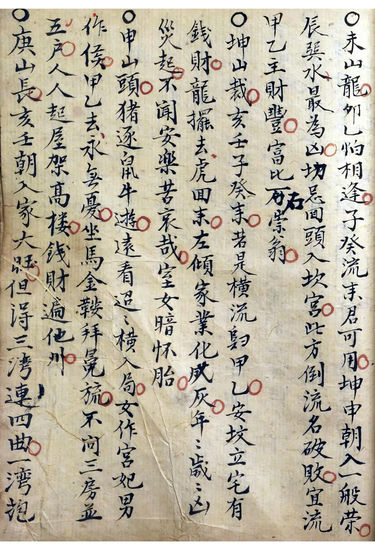 ○未山龍卯乙怕相逢子癸流来君可用坤申朝入一般荣
辰巽水最為凶切忌回頭入坎宮此方倒流名破敗宜流
甲乙主財豐富比石崇翁
○坤山裁亥壬子癸来若是橫流到甲乙安坟立宅有
錢財龍擺去虎回来左傾家業化成灰年〻歲〻凶
災起不闻安樂苦哀哉室女暗怀胎
○申山頭猪逐鼠牛遊遠看迢〻橫入局女作宮妃男
作侯甲乙去永無憂坐馬金鞍拜冕旒不问三房並
五戶人人起屋架高楼錢財遍他州
○庚山長亥壬朝入家大旺但得三湾連四曲一湾抱